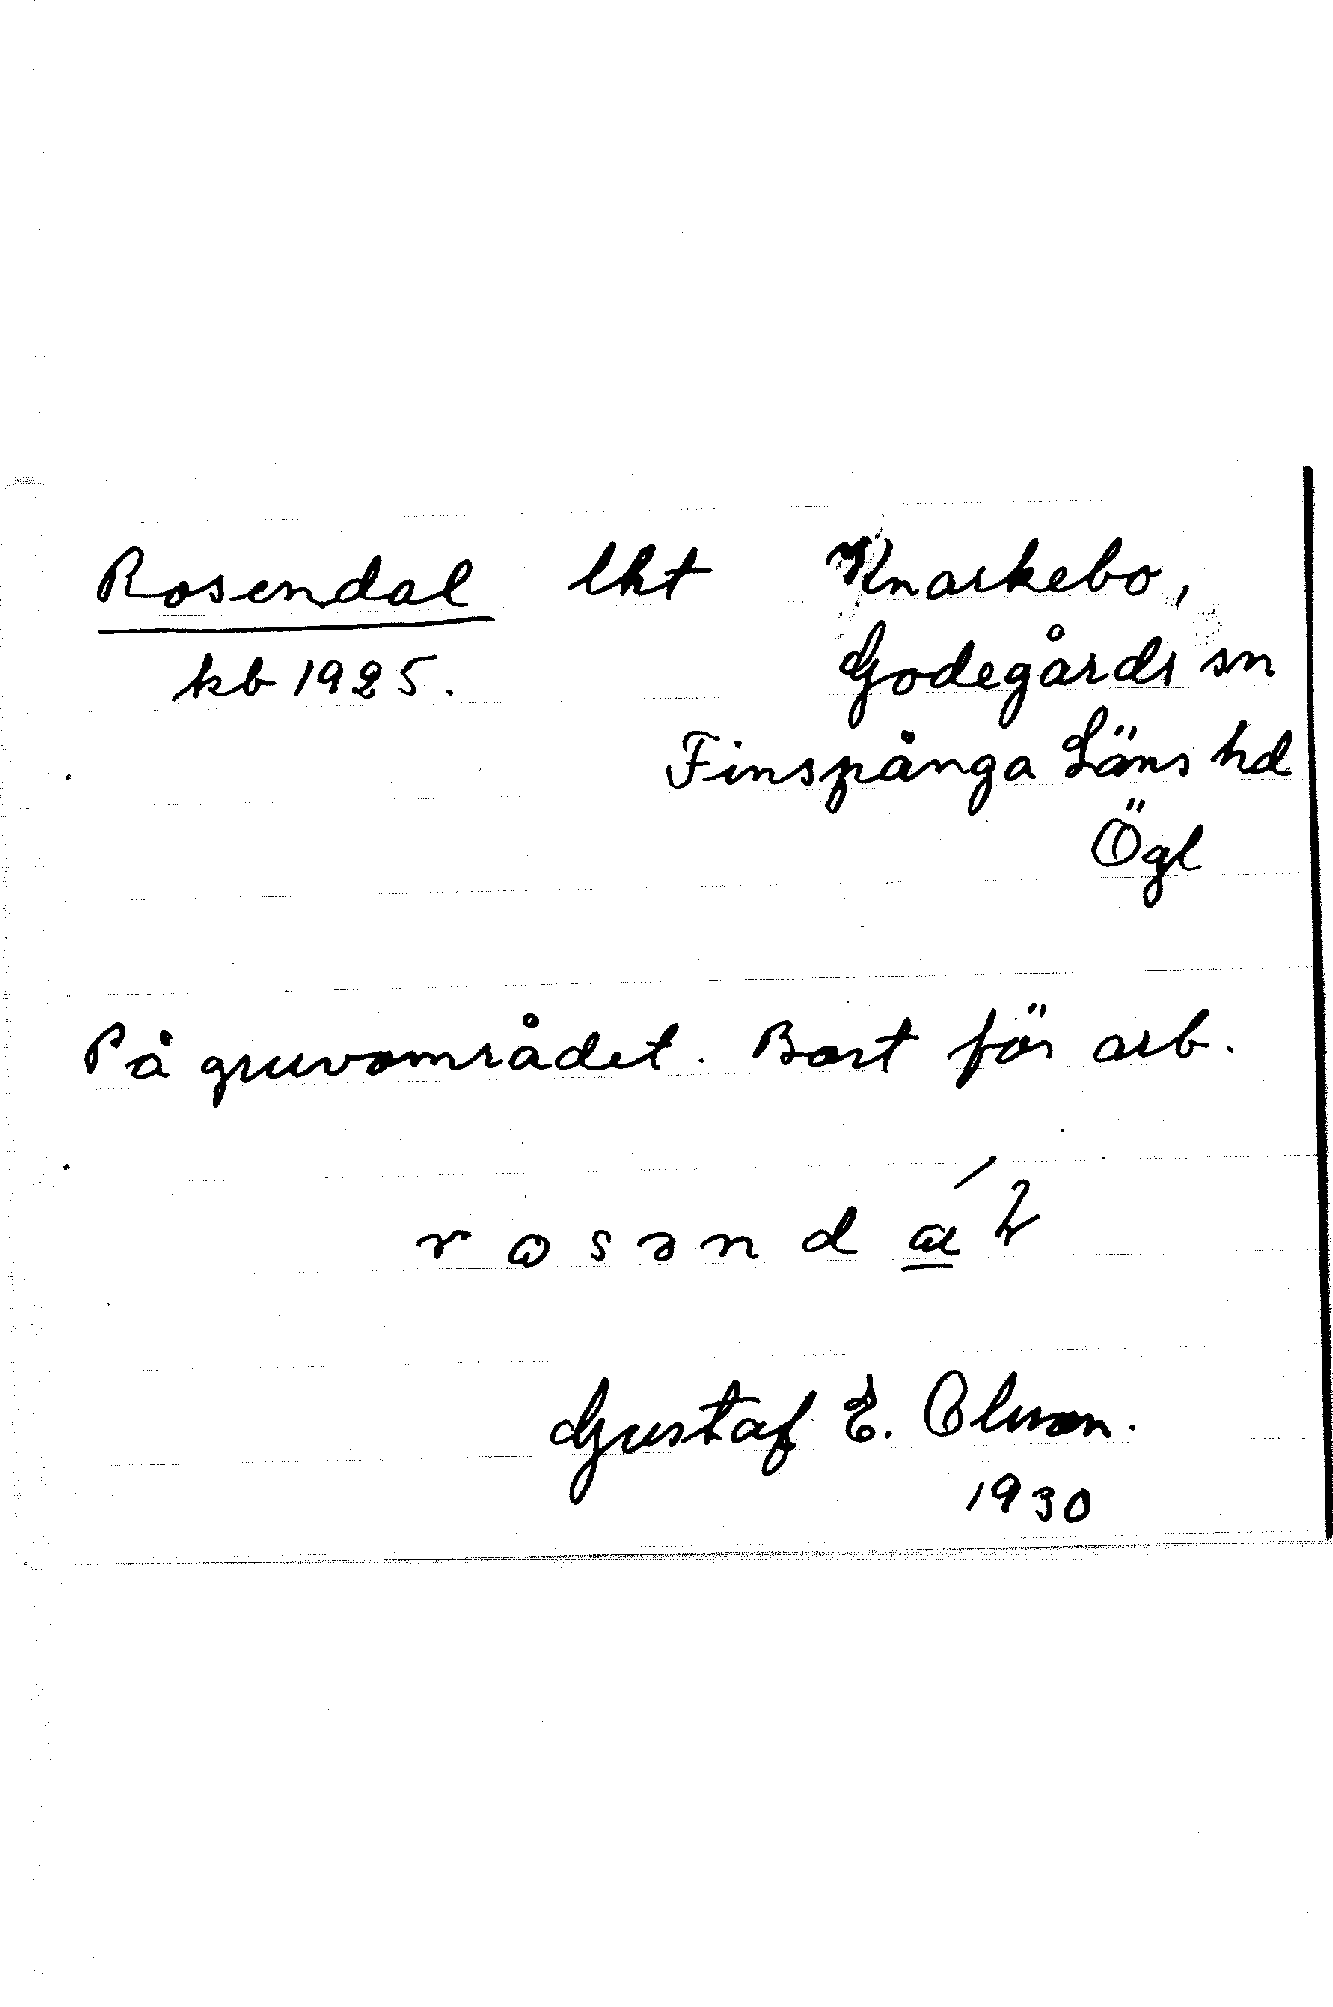 Rosendal lht Knarkebo,
kb 1925. Godegårds sn
Finspånga Läns hd
Ögl
På gruvområdet. Bort för arb.
Gustaf E. Olsson.
1930